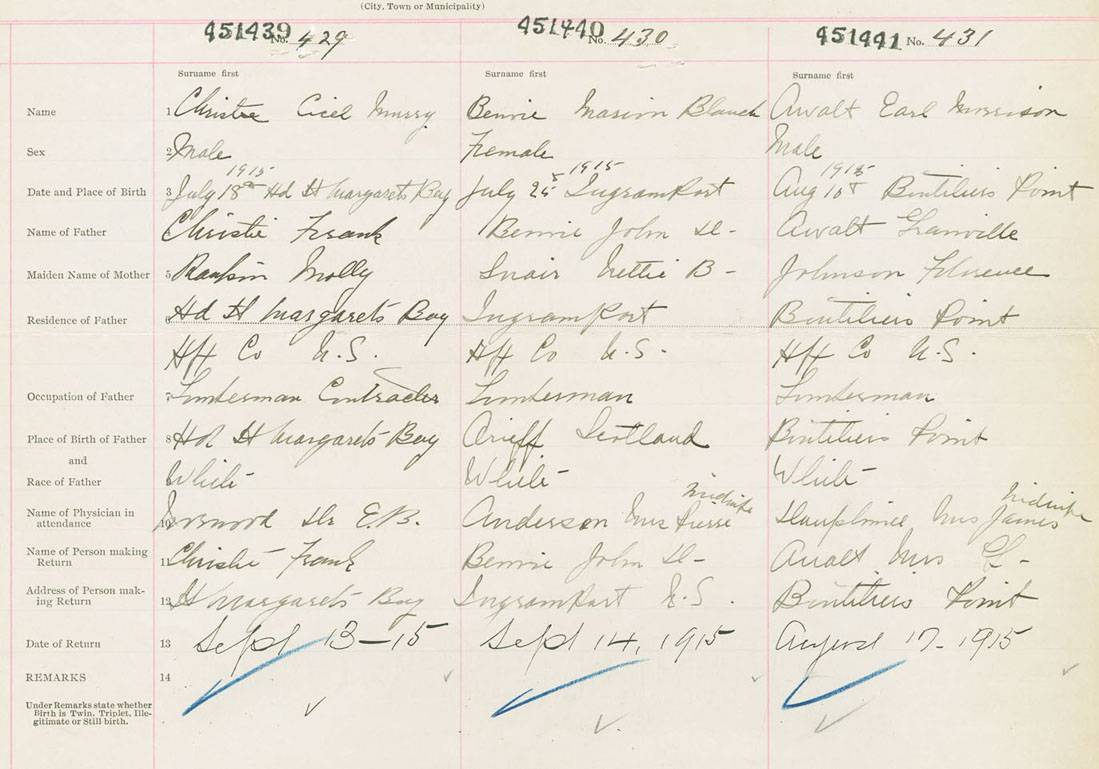 (City, Town or Municipality)
451439 No. 429 451440 No. 430 451441 No. 431
Surname first Surname first Surname first
Name 1 Christie Cicel Murry Bennie Marion Blanch Awalt Earl Morrison
Sex 2 Male Female Male
1915 1915 1915
Date and Place of Birth 3 July 18th Hd St Margarets Bay July 25 IngramPort Aug 10th Boutiliers Point
Name of Father 4 Christie Frank Bennie John D- Awalt Granville
Maiden Name of Mother 5 Rankin Molly Snair Nettie B- Johnson Florence
Residence of Father 6 Hd St Margarets Bay IngramPort Boutiliers Point
Hfx Co N.S. Hfx Co N.S. Hfx Co N.S.
Occupation of Father 7 Lumberman Contractor Lumberman Lumberman
Place of Birth of Father 8 Hd St Margarets Bay Scotland Boutiliers Point
and
Race of Father White White White
midwife midwife
Name of Physician in
attendance 10 Dr E.B. Anderson Mrs Pierre Dauphinee Mrs James
Name of Person making
Return 11 Christie Frank Bennie John D- Awalt Mrs G-
Address of Person mak-
ing Return 12 St Margarets Bay IngramPort N.S. Boutiliers Point
Date of Return 13 Sept 13-15 Sept 14, 1915 August 17-1915
REMARKS 14
Under Remarks state whether
Birth is Twin, Triplet, Ille-
gitimate or Still birth.